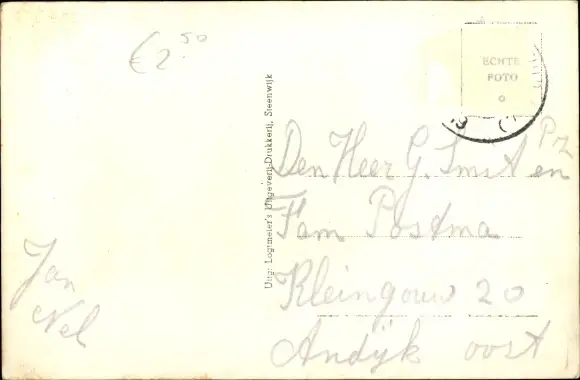 €2.50
ECHTE
FOTO
Uitg: Logtmeier's Uitgeverij-Drukkerij, Steenwijk
Den Heer G. Smit en Pz
Fam Postma
Kleingouw 20
Andijk oost
Jan
Nel